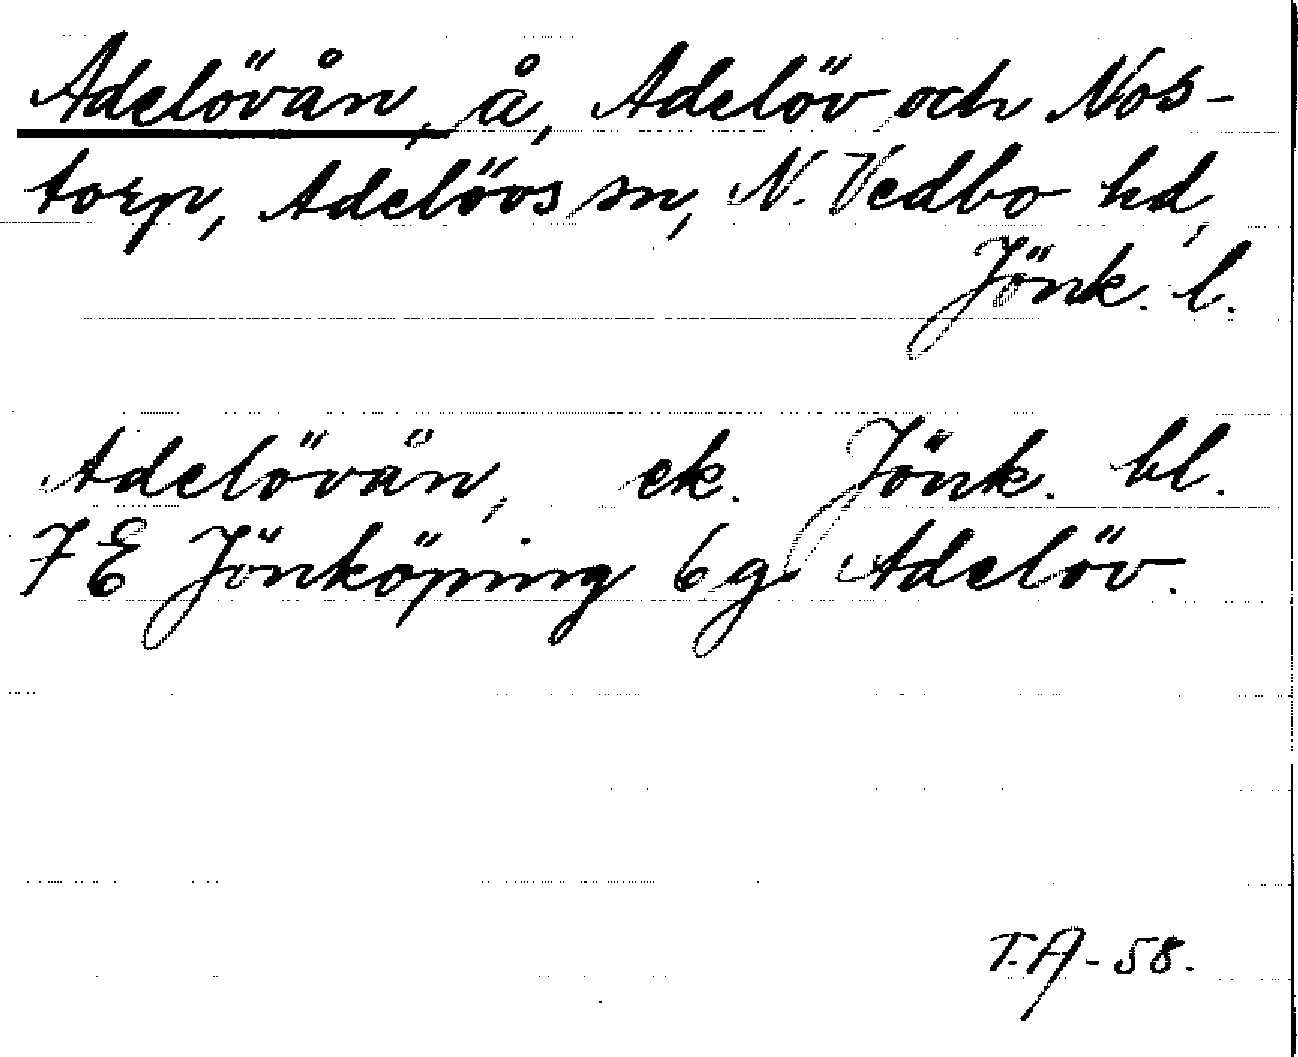 Adelövån, å, Adelöv och Nos-
torp, Adelövs sn, N. Vedbo hd,
Jönk. l.
Adelövån, ek. Jönk. bl.
7E Jönköping 6g Adelöv.
T.A-58.